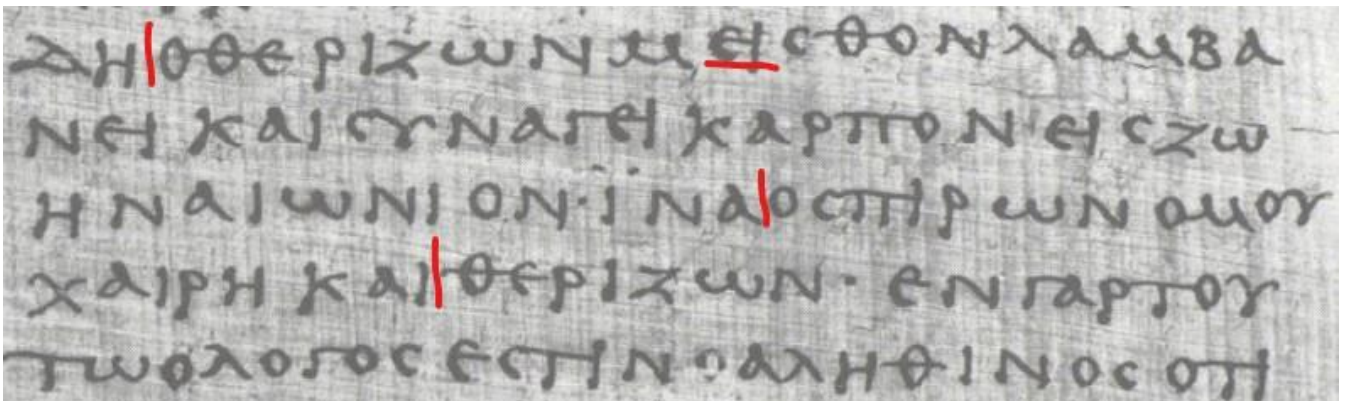 ΔΗΟΘΕΡΙΖΩΝΜΕΙϹΘΟΝΛΑΜΒΑ
ΝΕΙΚΑΙϹΥΝΑΓΕΙΚΑΡΠΟΝΕΙϹΖΩ
ΗΝΑΙΩΝΙΟΝ·ΪΝΑΟϹΠΙΡΩΝΟΜΟΥ
ΧΑΙΡΗΚΑΙΘΕΡΙΖΩΝ·ΕΝΓΑΡΤΟΥ
ΤΩΟΛΟΓΟϹΕϹΤΙΝΟΑΛΗΘΙΝΟϹΟΤΙ